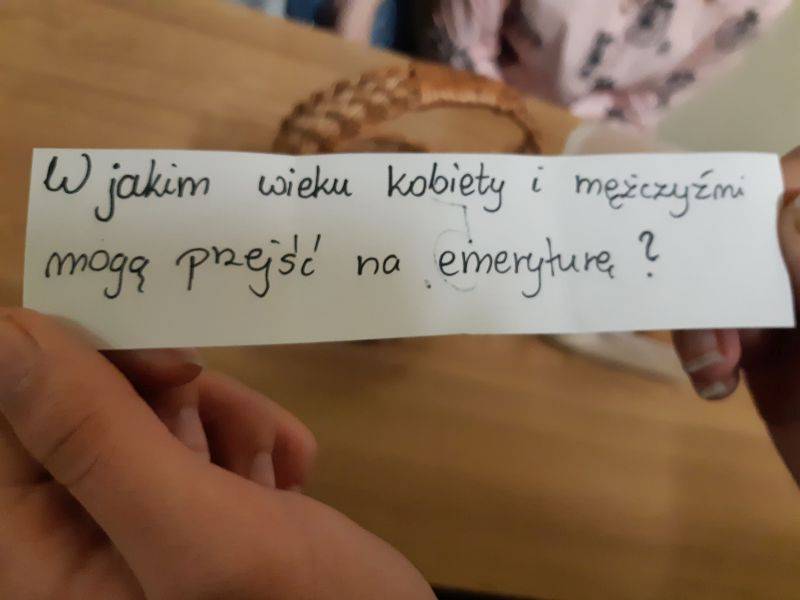 W jakim wieku kobiety i mężczyźni
mogą przejść na emeryturę ?